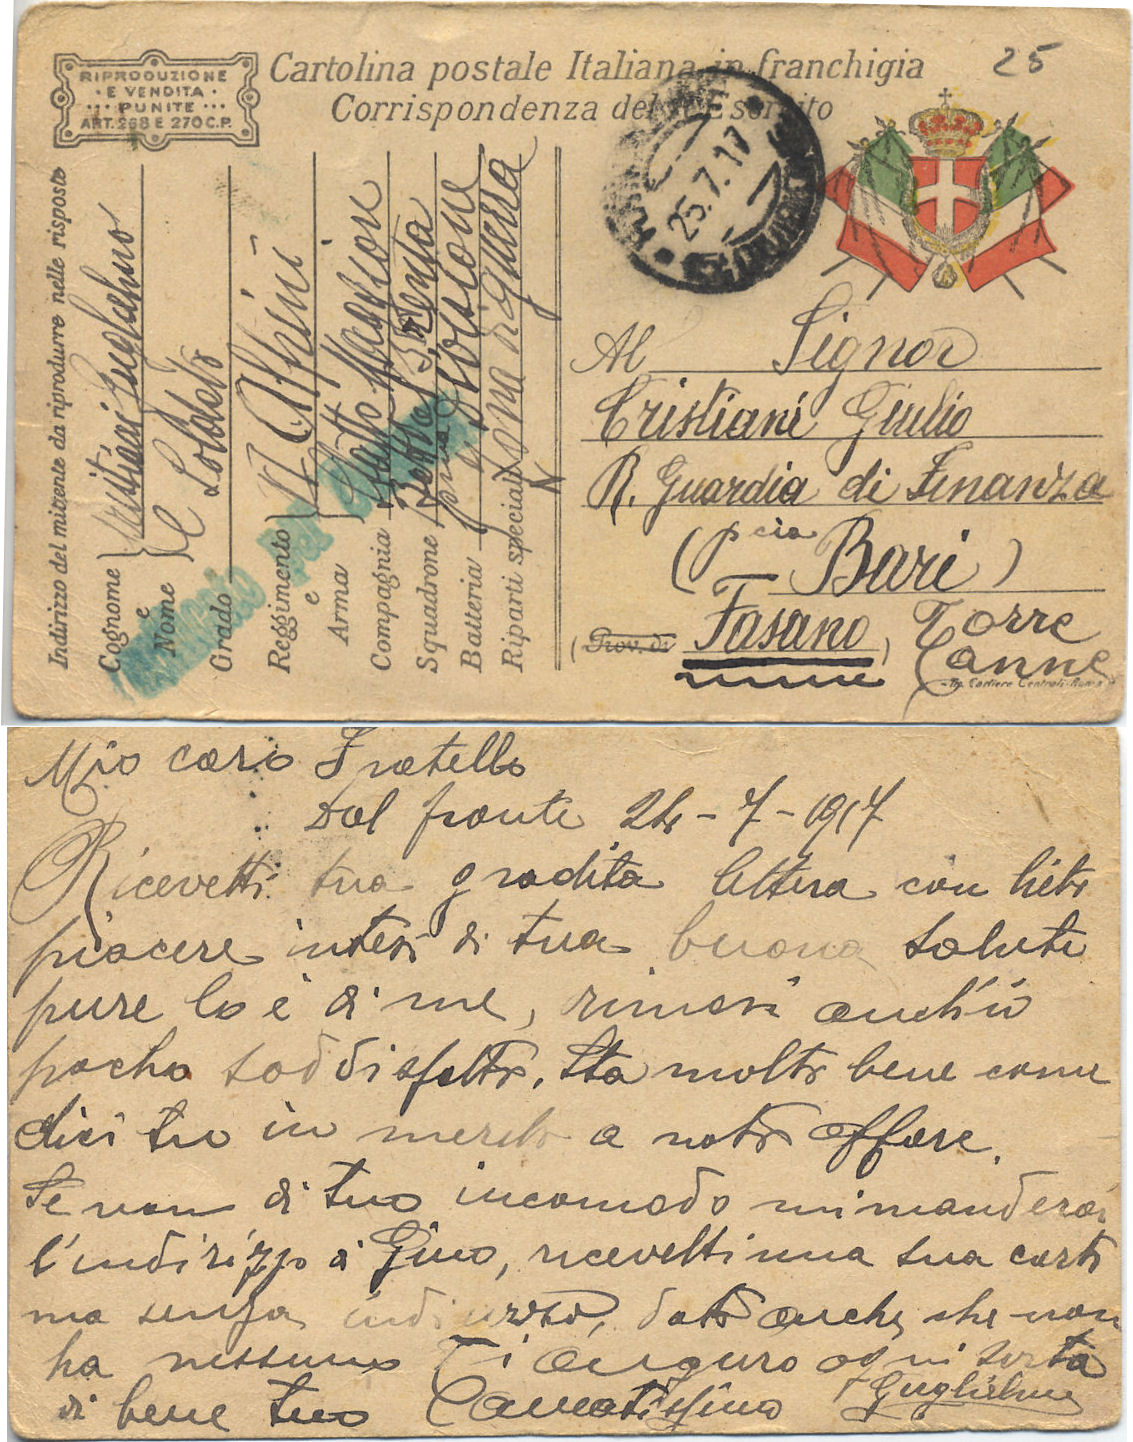 RIPRODUZIONE
E VENDITA
PUNITE
ART. 268 E 270 C.P.
Cartolina postale Italiana in franchigia
Corrispondenza del R. Esercito
25
25.7.17
Indirizzo del mittente da riprodurre nelle risposte
Cognome e Nome Cristiani Guglielmo
Grado Soldato
Reggimento e Arma Alpini
Compagnia
Squadrone
Batteria Divisione
Riparti speciali Zona di guerra
Al Signor
Cristiani Giulio
R. Guardia di Finanza
(pcia Bari)
(Prov. di Fasano) Torre
Canne
Mio caro Fratello
Dal fronte 24-7-1917
Ricevetti tua gradita lettera con lieto
piacere intesi di tua buona salute
pure lo è di me, rimasi anch'io
pocho soddisfatto. Sta molto bene come
dici tu in merito a noto affare.
Se non di tuo incomodo mi manderai
l'indirizzo di Gino, ricevetti una sua carto
ma senza indirizzo, dato anche che non
ha nessuno Ti auguro ogni sorta
di bene tuo Guglielmo